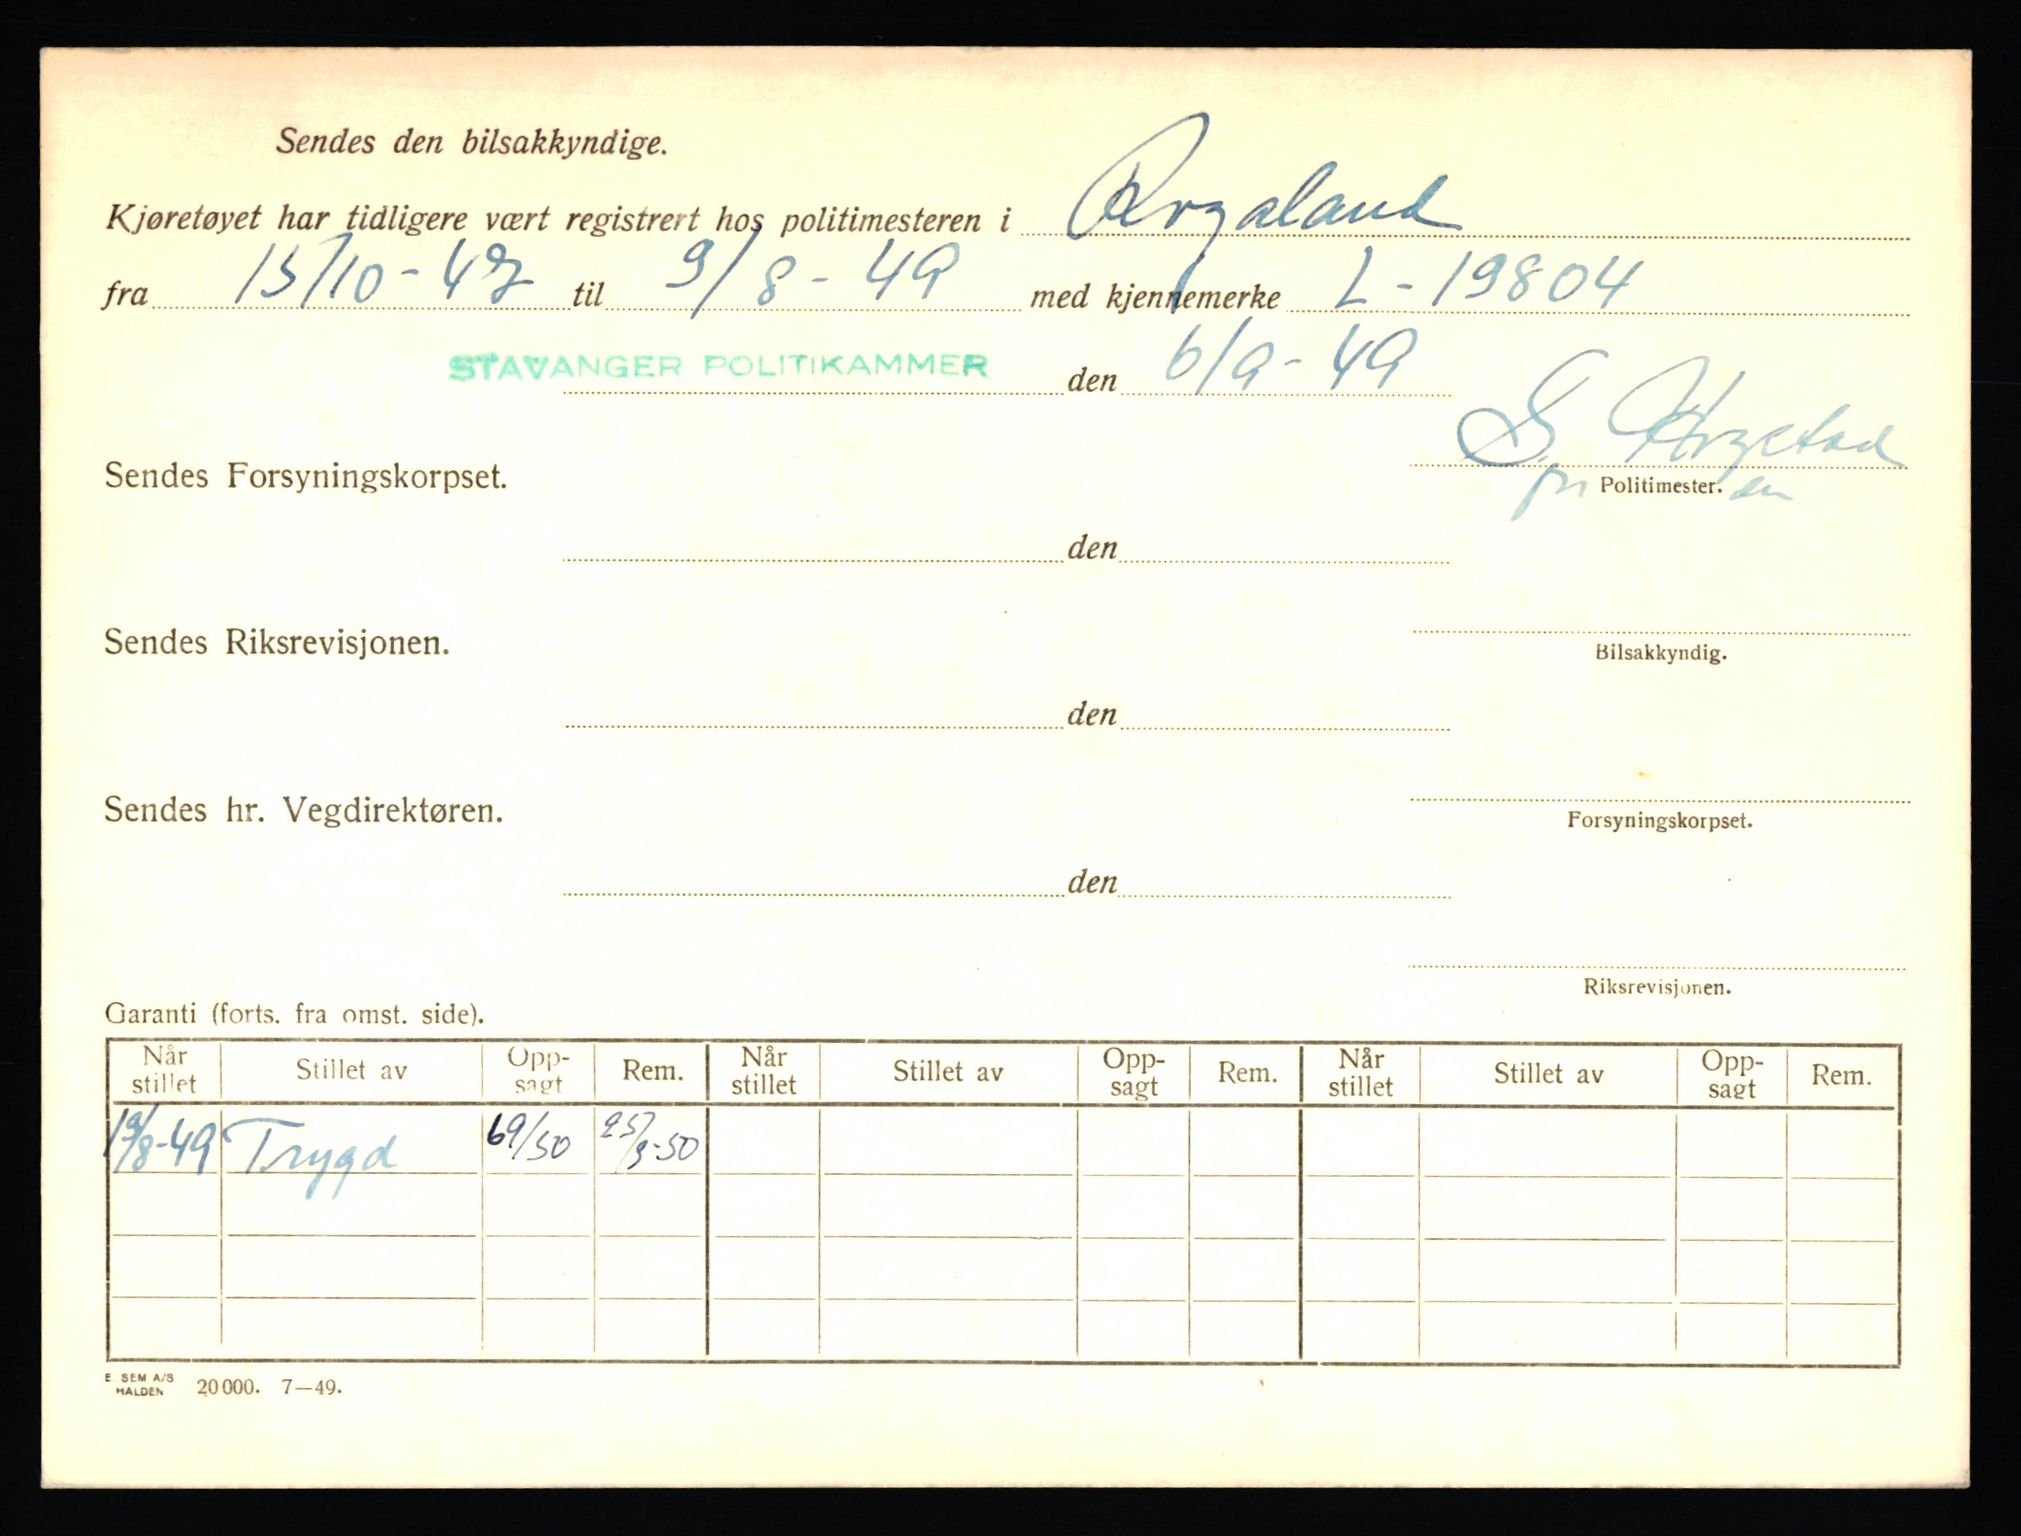 Sendes den bilsakkyndige.
Kjøretøyet har tidligere vært registrert hos politimesteren i Rogaland
fra 15/10-47 til 9/8-49 med kjennemerke L-19804
STAVANGER POLITIKAMMER den 6/9-49
Sendes Forsyningskorpset.
Politimester.
den
Sendes Riksrevisjonen.
Bilsakkyndig.
den
Sendes hr. Vegdirektøren.
Forsyningskorpset.
den
Riksrevisjonen.
Garanti (forts. fra omst. side).
Når stillet Stillet av Opp-sagt Rem. Når stillet Stillet av Opp-sagt Rem. Når stillet Stillet av Opp-sagt Rem.
19/8-49 Trygd 69/50 25/3-50
E. SEM A/S HALDEN 20000. 7—49.